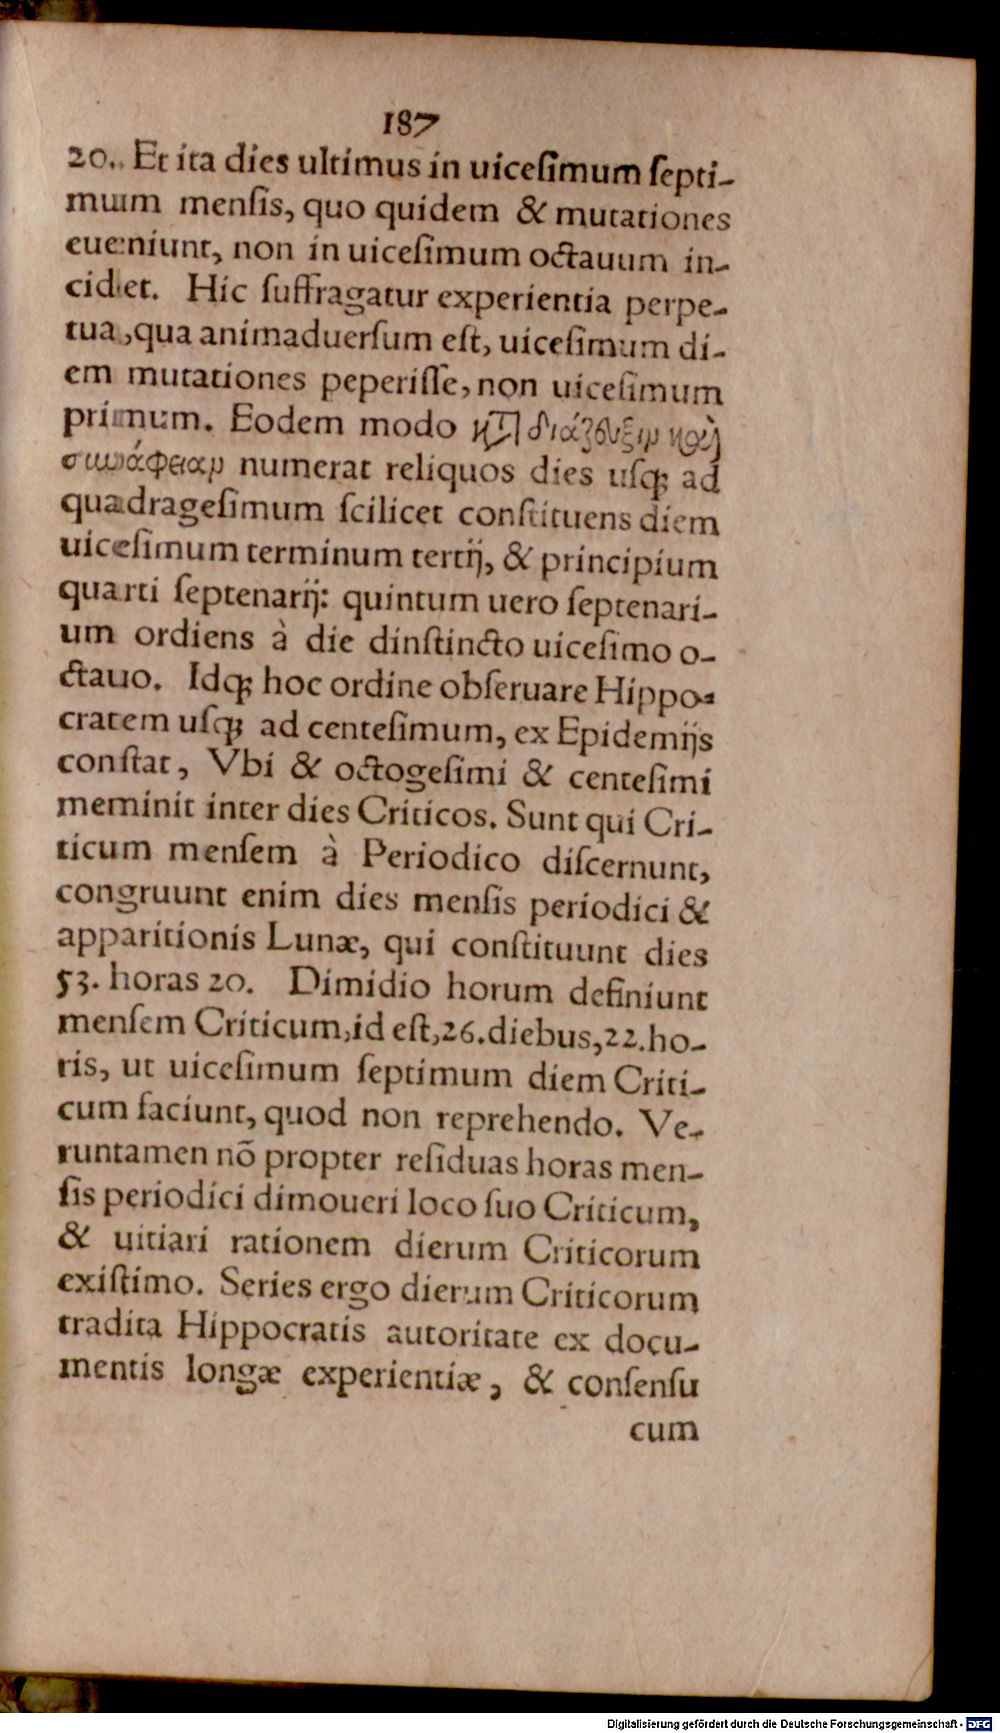 187
20. Et ita dies ultimus in uiceſimum ſepti-
mum menſis, quo quidem & mutationes
eueniunt, non in uiceſimum octauum in-
cidet. Hic ſuffragatur experientia perpe-
tua, qua animaduerſum eſt, uiceſimum di-
em mutationes peperiſſe, non uiceſimum
primum. Eodem modo κτ̀ διάζευξιν καὶ
συνάφειαν numerat reliquos dies uſq; ad
quadrageſimum ſcilicet conſtituens diem
uiceſimum terminum tertij, & principium
quarti ſeptenarij: quintum uero ſeptenari-
um ordiens à die dinſtincto uiceſimo o-
ctauo. Idq; hoc ordine obſeruare Hippo-
cratem uſq; ad centeſimum, ex Epidemijs
conſtat, Vbi & octogeſimi & centeſimi
meminit inter dies Criticos. Sunt qui Cri-
ticum menſem à Periodico diſcernunt,
congruunt enim dies menſis periodici &
apparitionis Lunæ, qui conſtituunt dies
53. horas 20. Dimidio horum definiunt
menſem Criticum, id eſt, 26. diebus, 22. ho-
ris, ut uiceſimum ſeptimum diem Criti-
cum faciunt, quod non reprehendo. Ve-
runtamen nõ propter reſiduas horas men-
ſis periodici dimoueri loco ſuo Criticum,
& uitiari rationem dierum Criticorum
exiſtimo. Series ergo dierum Criticorum
tradita Hippocratis autoritate ex docu-
mentis longæ experientiæ, & conſenſu
cum
Digitalisierung gefördert durch die Deutsche Forschungsgemeinschaft - DFG